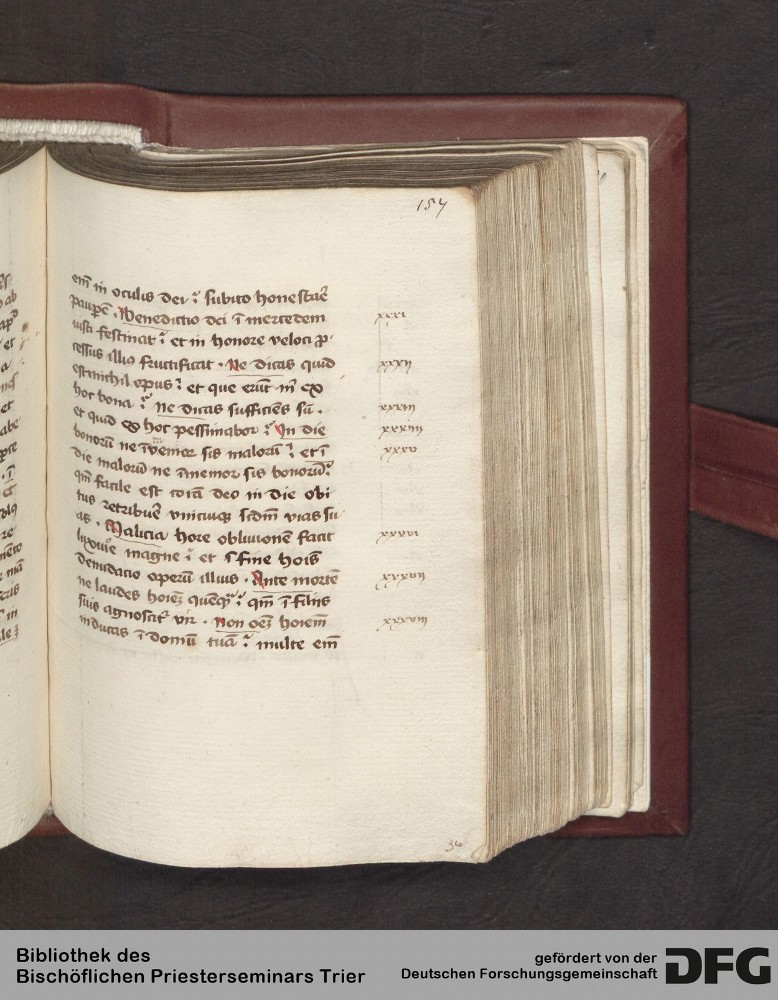 154
em̄ in oculis dei : subito honestar̄e
paup̄ē . Benedictio dei ī mercedem
iusti festinat : et in honore veloci p̄-
cessus illiꝰ fructificat . Ne dicas quid
est michi opus : et que erūt m̄ ex
hoc bona : Ne dicas sufficiēs sū .
et quid ex hoc pessimabor : In die
bonorū ne īmemor sis malorū : et ī
die malorū ne īmemor sis bonorū :
qm̄ facile est corā deo in die obi
tus retribuē vnicuiqꝫ scdm̄ vias su
as . Malicia hore obliuionē facit
luxurie magne : et ī fine hoīs
denudacio operū illius . Ante mortē
ne laudes hoīeꝫ quēqꝫ : qm̄ ī filiis
suis agnoscit̄ vir . Non oēꝫ hoīem
inducas ī domū tuā : multe em̄
xxxi
xxxii
xxxiii
xxxiiii
xxxv
xxxvi
xxxvii
xxxviii
30
Bibliothek des
Bischöflichen Priesterseminars Trier
gefördert von der
Deutschen Forschungsgemeinschaft
DFG